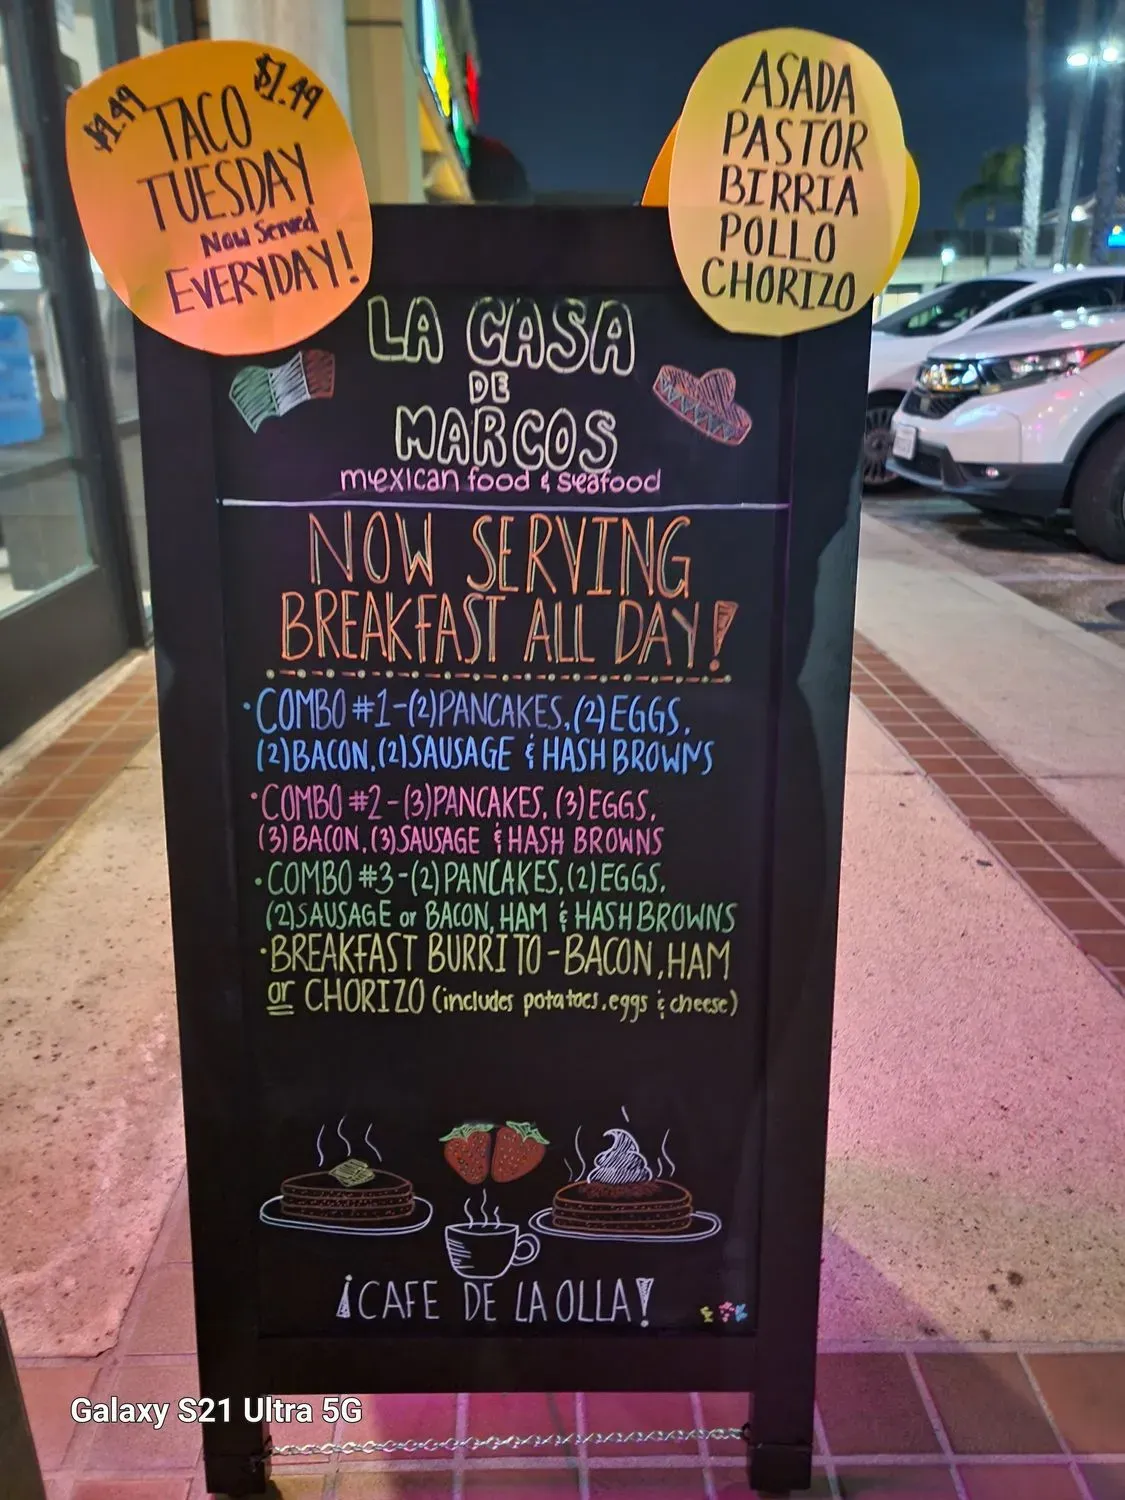 $1.49
$1.49
TACO
TUESDAY
Now Served
EVERYDAY!
ASADA
PASTOR
BIRRIA
POLLO
CHORIZO
LA CASA
DE
MARCOS
mexican food & seafood
NOW SERVING
BREAKFAST ALL DAY!
• COMBO #1-(2)PANCAKES, (2)EGGS,
(2)BACON, (2)SAUSAGE & HASH BROWNS
• COMBO #2-(3)PANCAKES, (3)EGGS,
(3)BACON, (3)SAUSAGE & HASH BROWNS
• COMBO #3-(2)PANCAKES, (2)EGGS,
(2)SAUSAGE or BACON, HAM & HASH BROWNS
• BREAKFAST BURRITO-BACON, HAM
or CHORIZO (includes potatoes, eggs & cheese)
¡CAFE DE LA OLLA!
Galaxy S21 Ultra 5G